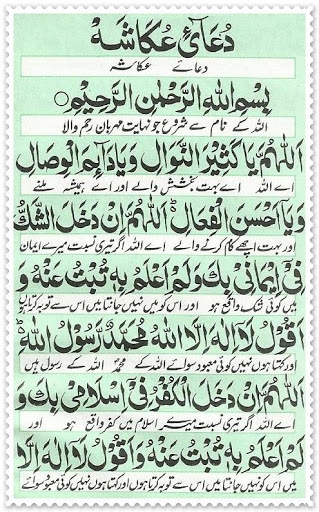 دُعَائے عُکَّاشَہ
دعائے عکاشہ
بِسْمِ اللهِ الرَّحْمٰنِ الرَّحِيْمِ ○
اللہ کے نام سے شروع جو نہایت مہربان رحم والا
اَللّٰهُمَّ يَا كَثِيْرَ النَّوَالِ وَيَا دَآئِمَ الْوِصَالِ
اے اللہ اے بہت بخشش والے اور اے ہمیشہ ملنے
وَيَا اَحْسَنَ الْفِعَالِ ط اَللّٰهُمَّ اِنْ دَخَلَ الشَّكُّ
اور بہت اچھے کام کرنے والے اے اللہ اگر تیری نسبت میرے ایمان
فِيْ اِيْمَانِيْ بِكَ وَلَمْ اَعْلَمْ بِهٖ تُبْتُ عَنْهُ وَ
میں کوئی شک واقع ہو اور اس کو میں نہیں جانتا میں اس سے توبہ کرتا ہوں
اَقُوْلُ لَاۤ اِلٰهَ اِلَّا اللهُ مُحَمَّدٌ رَّسُوْلُ اللهِ ط
اور کہتا ہوں نہیں کوئی معبود سوائے اللہ کے محمد اللہ کے رسول ہیں
اَللّٰهُمَّ اِنْ دَخَلَ الْكُفْرُ فِيْ اِسْلَامِيْ بِكَ وَ
اے اللہ اگر تیری نسبت میرے اسلام میں کفر واقع ہو اور
لَمْ اَعْلَمْ بِهٖ تُبْتُ عَنْهُ وَاَقُوْلُ لَاۤ اِلٰهَ اِلَّا
میں اس کو نہیں جانتا میں اس سے توبہ کرتا ہوں اور کہتا ہوں نہیں کوئی معبود سوائے